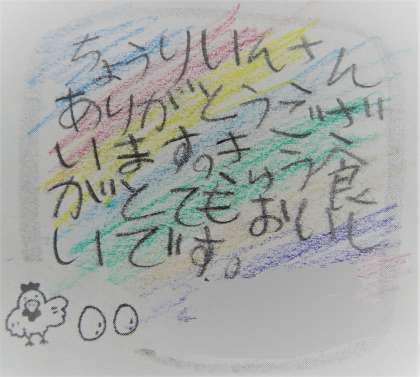 ちょうりいんさん
ありがとうござ
います。きゅう食
がとてもおいし
いです。